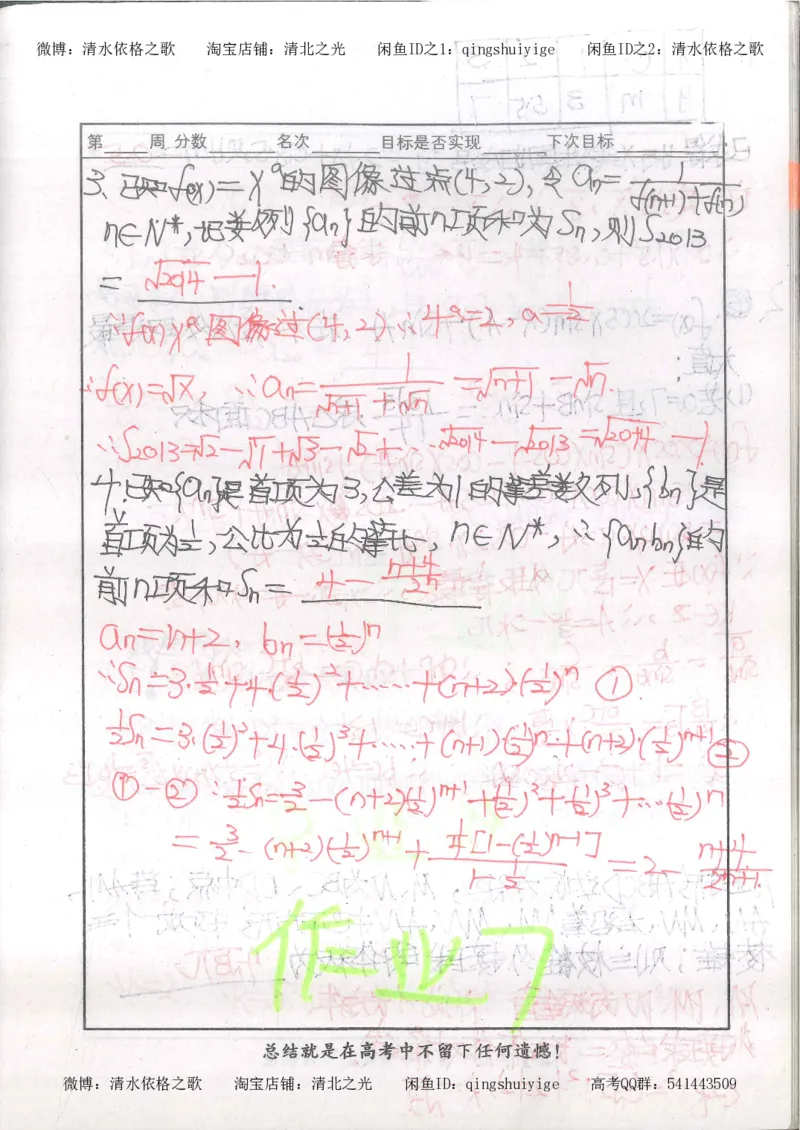 微博：清水依格之歌 淘宝店铺：清北之光 闲鱼ID之1：qingshuiyige 闲鱼ID之2：清水依格之歌
第 周 分数 名次 目标是否实现 下次目标
3、已知f(x)=x^a的图像过点(4,2),令an=1/(f(n+1)+f(n))
n∈N*,记数列{an}的前n项和为Sn,则S2013
=√2014-1.
∵f(x)x^a图像过(4,2)∴4^a=2,a=1/2
∴f(x)=√x,∴an=1/(√n+1+√n)=√n+1-√n
∴S2013=√2-√1+√3-√2+…√2014-√2013=√2014-1.
4.已知{an}是首项为3,公差为1的等差数列,{bn}是
首项为1/2,公比为1/2的等比,n∈N*,∴{anbn}的
前n项和Sn=4-(n+4)/2^n
an=n+2,bn=(1/2)^n
∴Sn=3·1/2+4·(1/2)^2+……+(n+2)·(1/2)^n ①
1/2Sn=3·(1/2)^2+4·(1/2)^3+……+(n+1)(1/2)^n+(n+2)·(1/2)^(n+1) ②
①-②∴1/2Sn=3/2-(n+2)(1/2)^(n+1)+(1/2)^2+(1/2)^3+…(1/2)^n
=3/2-(n+2)(1/2)^(n+1)+1/4[1-(1/2)^(n-1)]/(1-1/2)=2-(n+4)/2^(n+1).
作业7
总结就是在高考中不留下任何遗憾！
微博：清水依格之歌 淘宝店铺：清北之光 闲鱼ID：qingshuiyige 高考QQ群：541443509